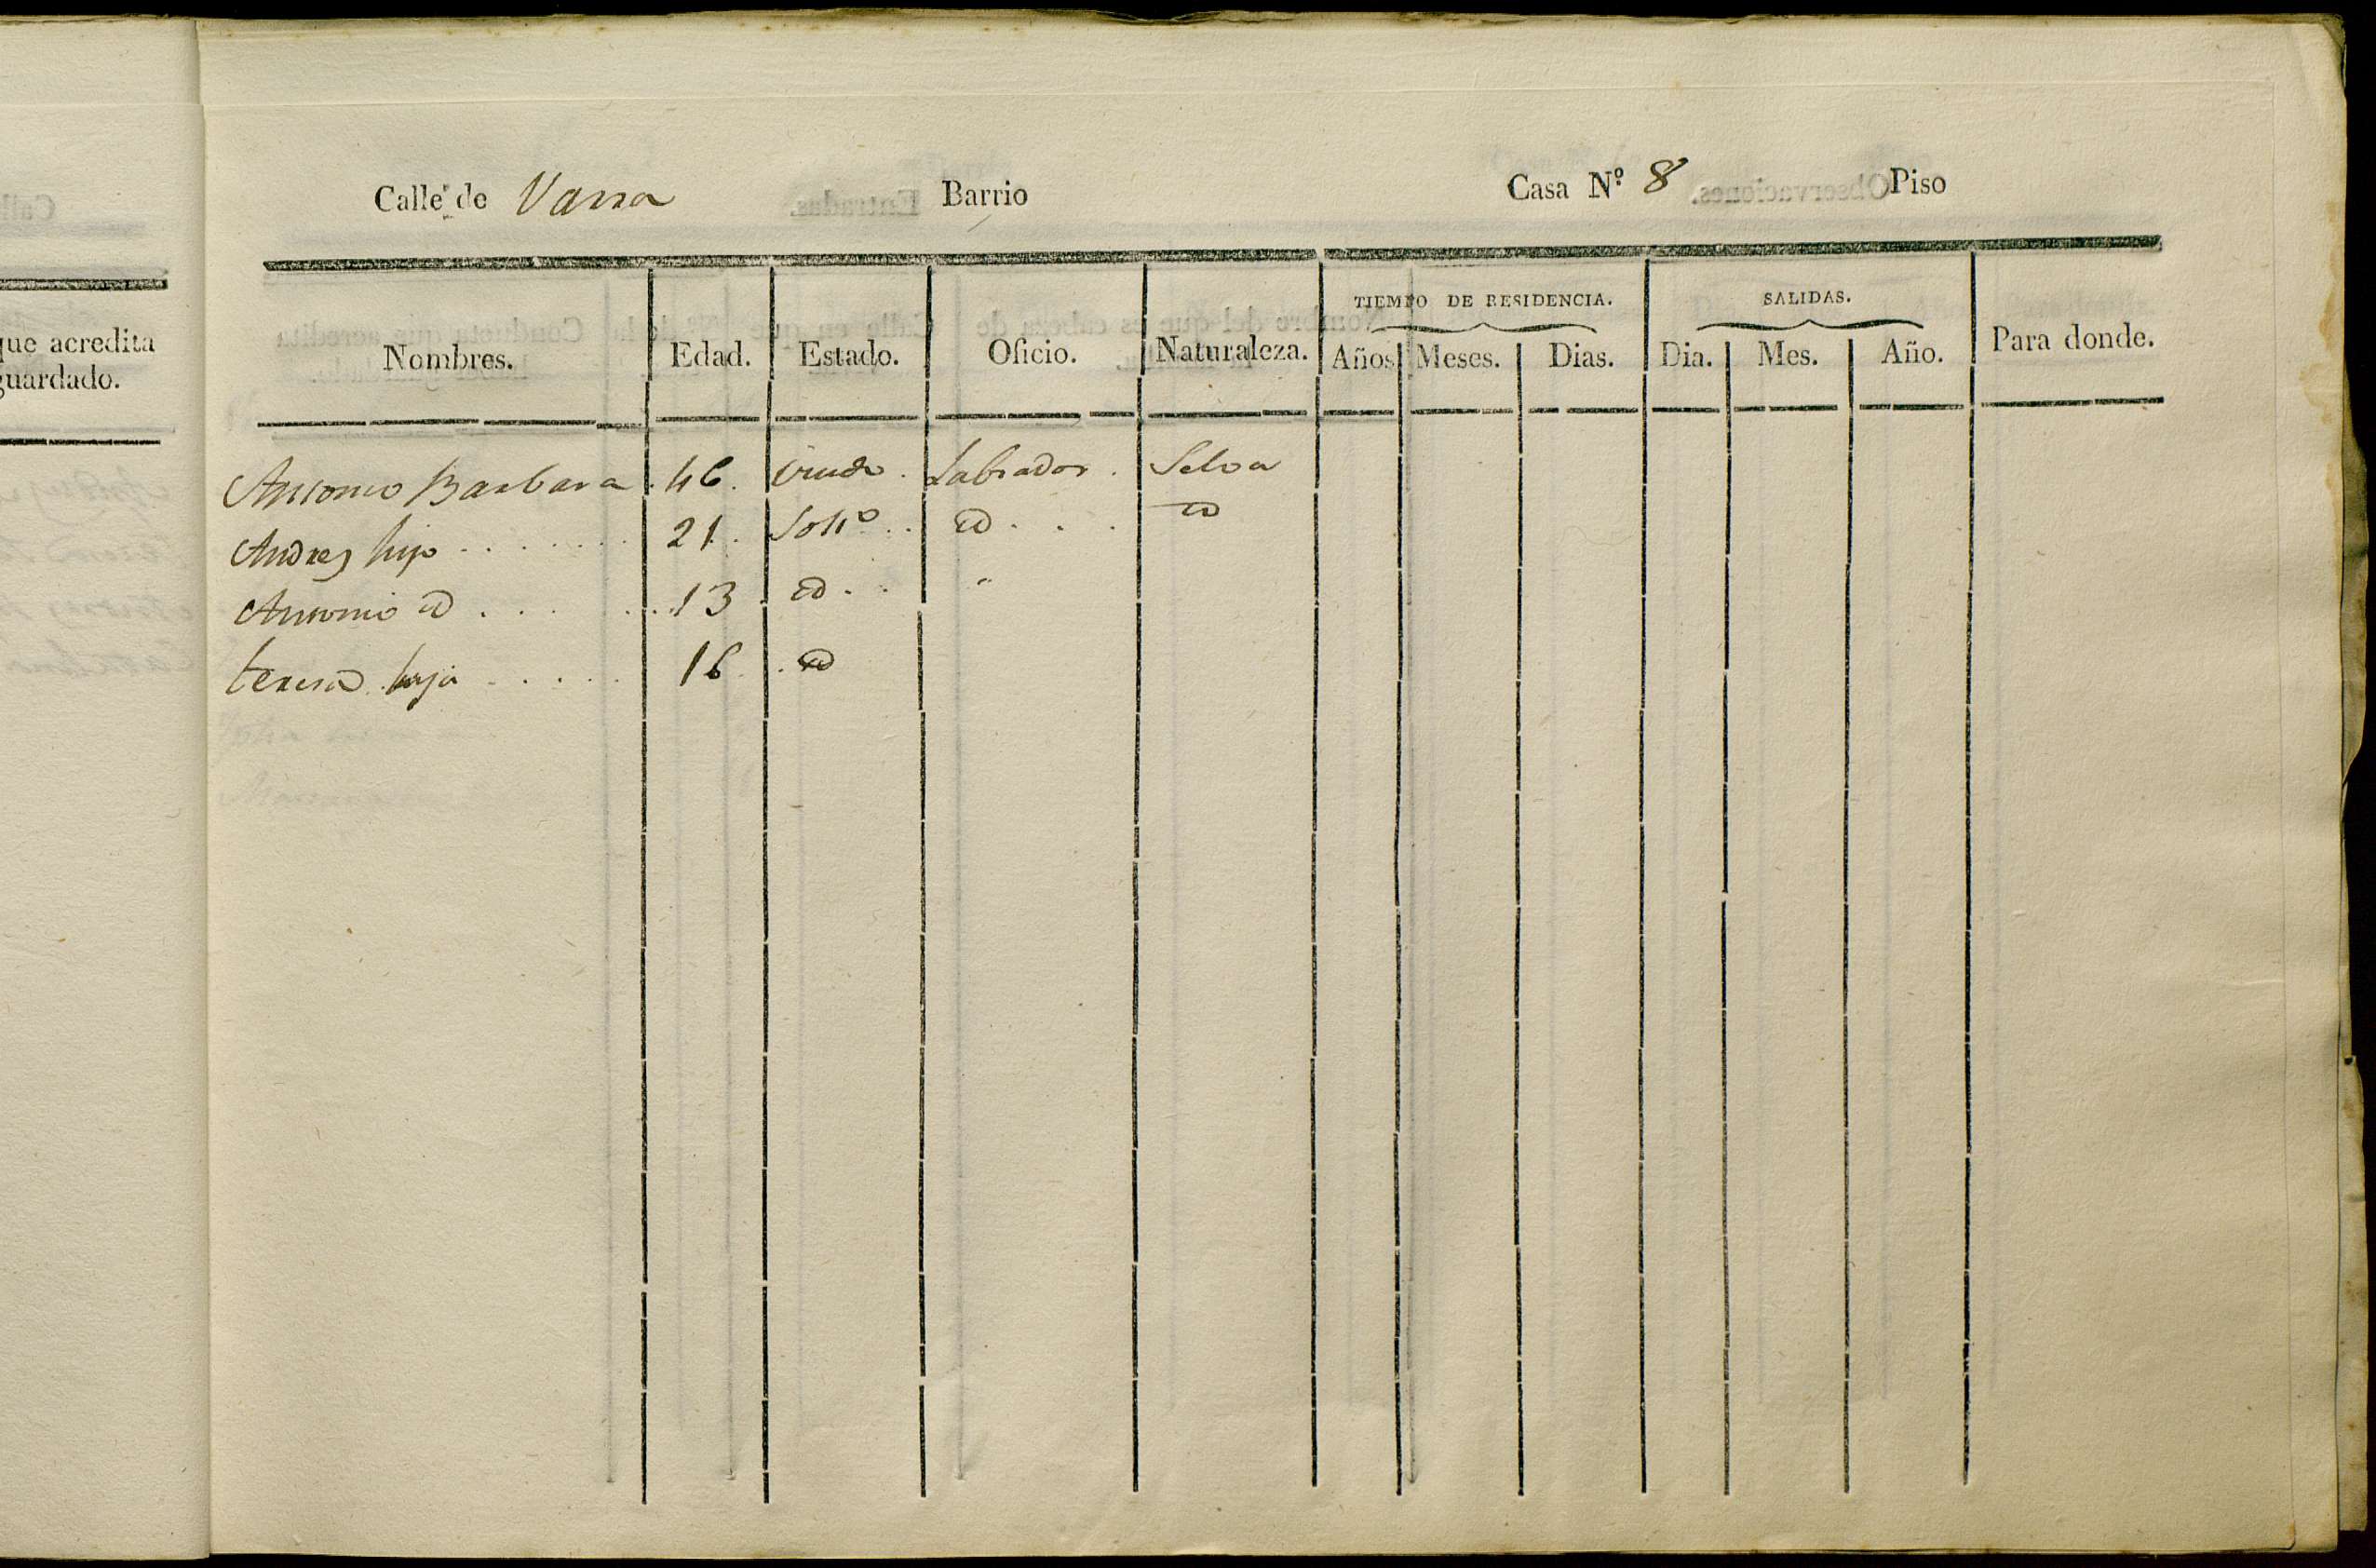 que acredita
guardado.
Calle de Varra Barrio Casa N.º 8 Piso
TIEMPO DE RESIDENCIA. SALIDAS.
Nombres. Edad. Estado. Oficio. Naturaleza. Años. Meses. Dias. Dia. Mes. Año. Para donde.
Antonio Barbara . 46. Viudo . Labrador . Selva
Andres hijo . . . . . . . 21 . Solt.º . . id . . . id
Antonio id . . . . . . 13 . id . . "
teresa hija . . . . . 16 . id